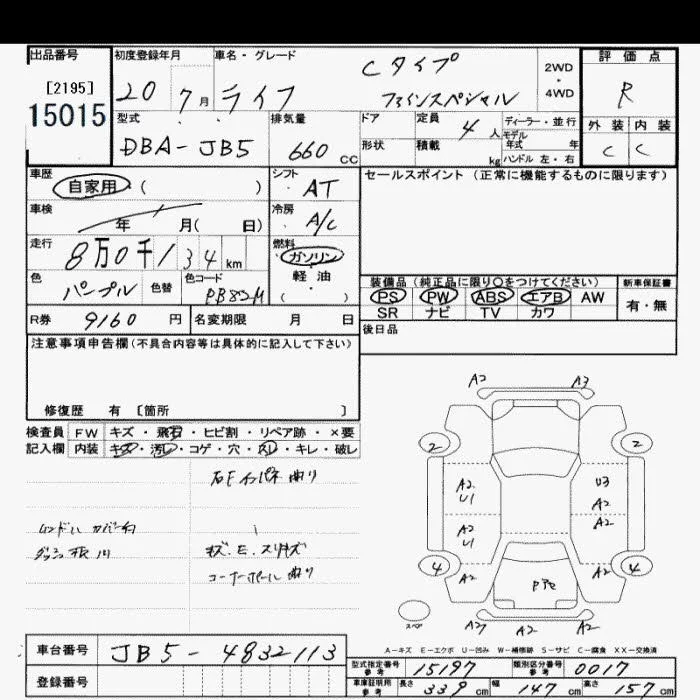 出品番号
[2195]
15015
初度登録年月
20 7月
車名・グレード
ライフ
Cタイプ
ファインスペシャル
2WD
・
4WD
評価点
R
外装 内装
C C
型式
DBA-JB5
排気量
660 CC
ドア
形状
定員 4人
積載 kg
ディーラー・並行
モデル年式 年
ハンドル 左・右
車歴
自家用 ( )
シフト
AT
車検
年 月( 日)
冷房
A/C
走行
8万0千134km
燃料
ガソリン
軽油
( )
色
パープル
色替
色コード
PB82M
R券 9160円
名変期限 月 日
セールスポイント(正常に機能するものに限ります)
装備品(純正品に限り○をつけてください)
PS PW ABS エアB AW
SR ナビ TV カワ
新車保証書
有・無
後日品
注意事項申告欄(不具合内容等は具体的に記入して下さい)
修復歴 有 〔箇所 〕
検査員 FW キズ・飛石・ヒビ割・リペア跡・×要
記入欄 内装 キズ・汚レ・コゲ・穴・スレ・キレ・破レ
キズ、E、スリキズ
コーナーポール曲り
A2 A3
2 2
A2 U1
U3 A2
A2 U1
A2
4 A2
A2 4
A2 A2
スペア
A-キズ E-エクボ U-凹み W-補修跡 S-サビ C-腐食 XX-交換済
車台番号 JB5-4832113
登録番号
型式指定番号 参考 15197
類別区分番号 参考 0017
車庫証明用 参考 長さ 339cm 幅 147cm 高さ 157cm